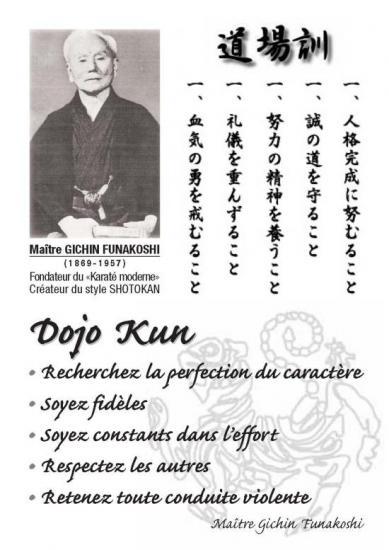 道場訓
一、人格完成に努むること
一、誠の道を守ること
一、努力の精神を養うこと
一、礼儀を重んずること
一、血気の勇を戒むること
Maître GICHIN FUNAKOSHI
(1869-1957)
Fondateur du «Karaté moderne»
Créateur du style SHOTOKAN
Dojo Kun
• Recherchez la perfection du caractère
• Soyez fidèles
• Soyez constants dans l'effort
• Respectez les autres
• Retenez toute conduite violente
Maître Gichin Funakoshi